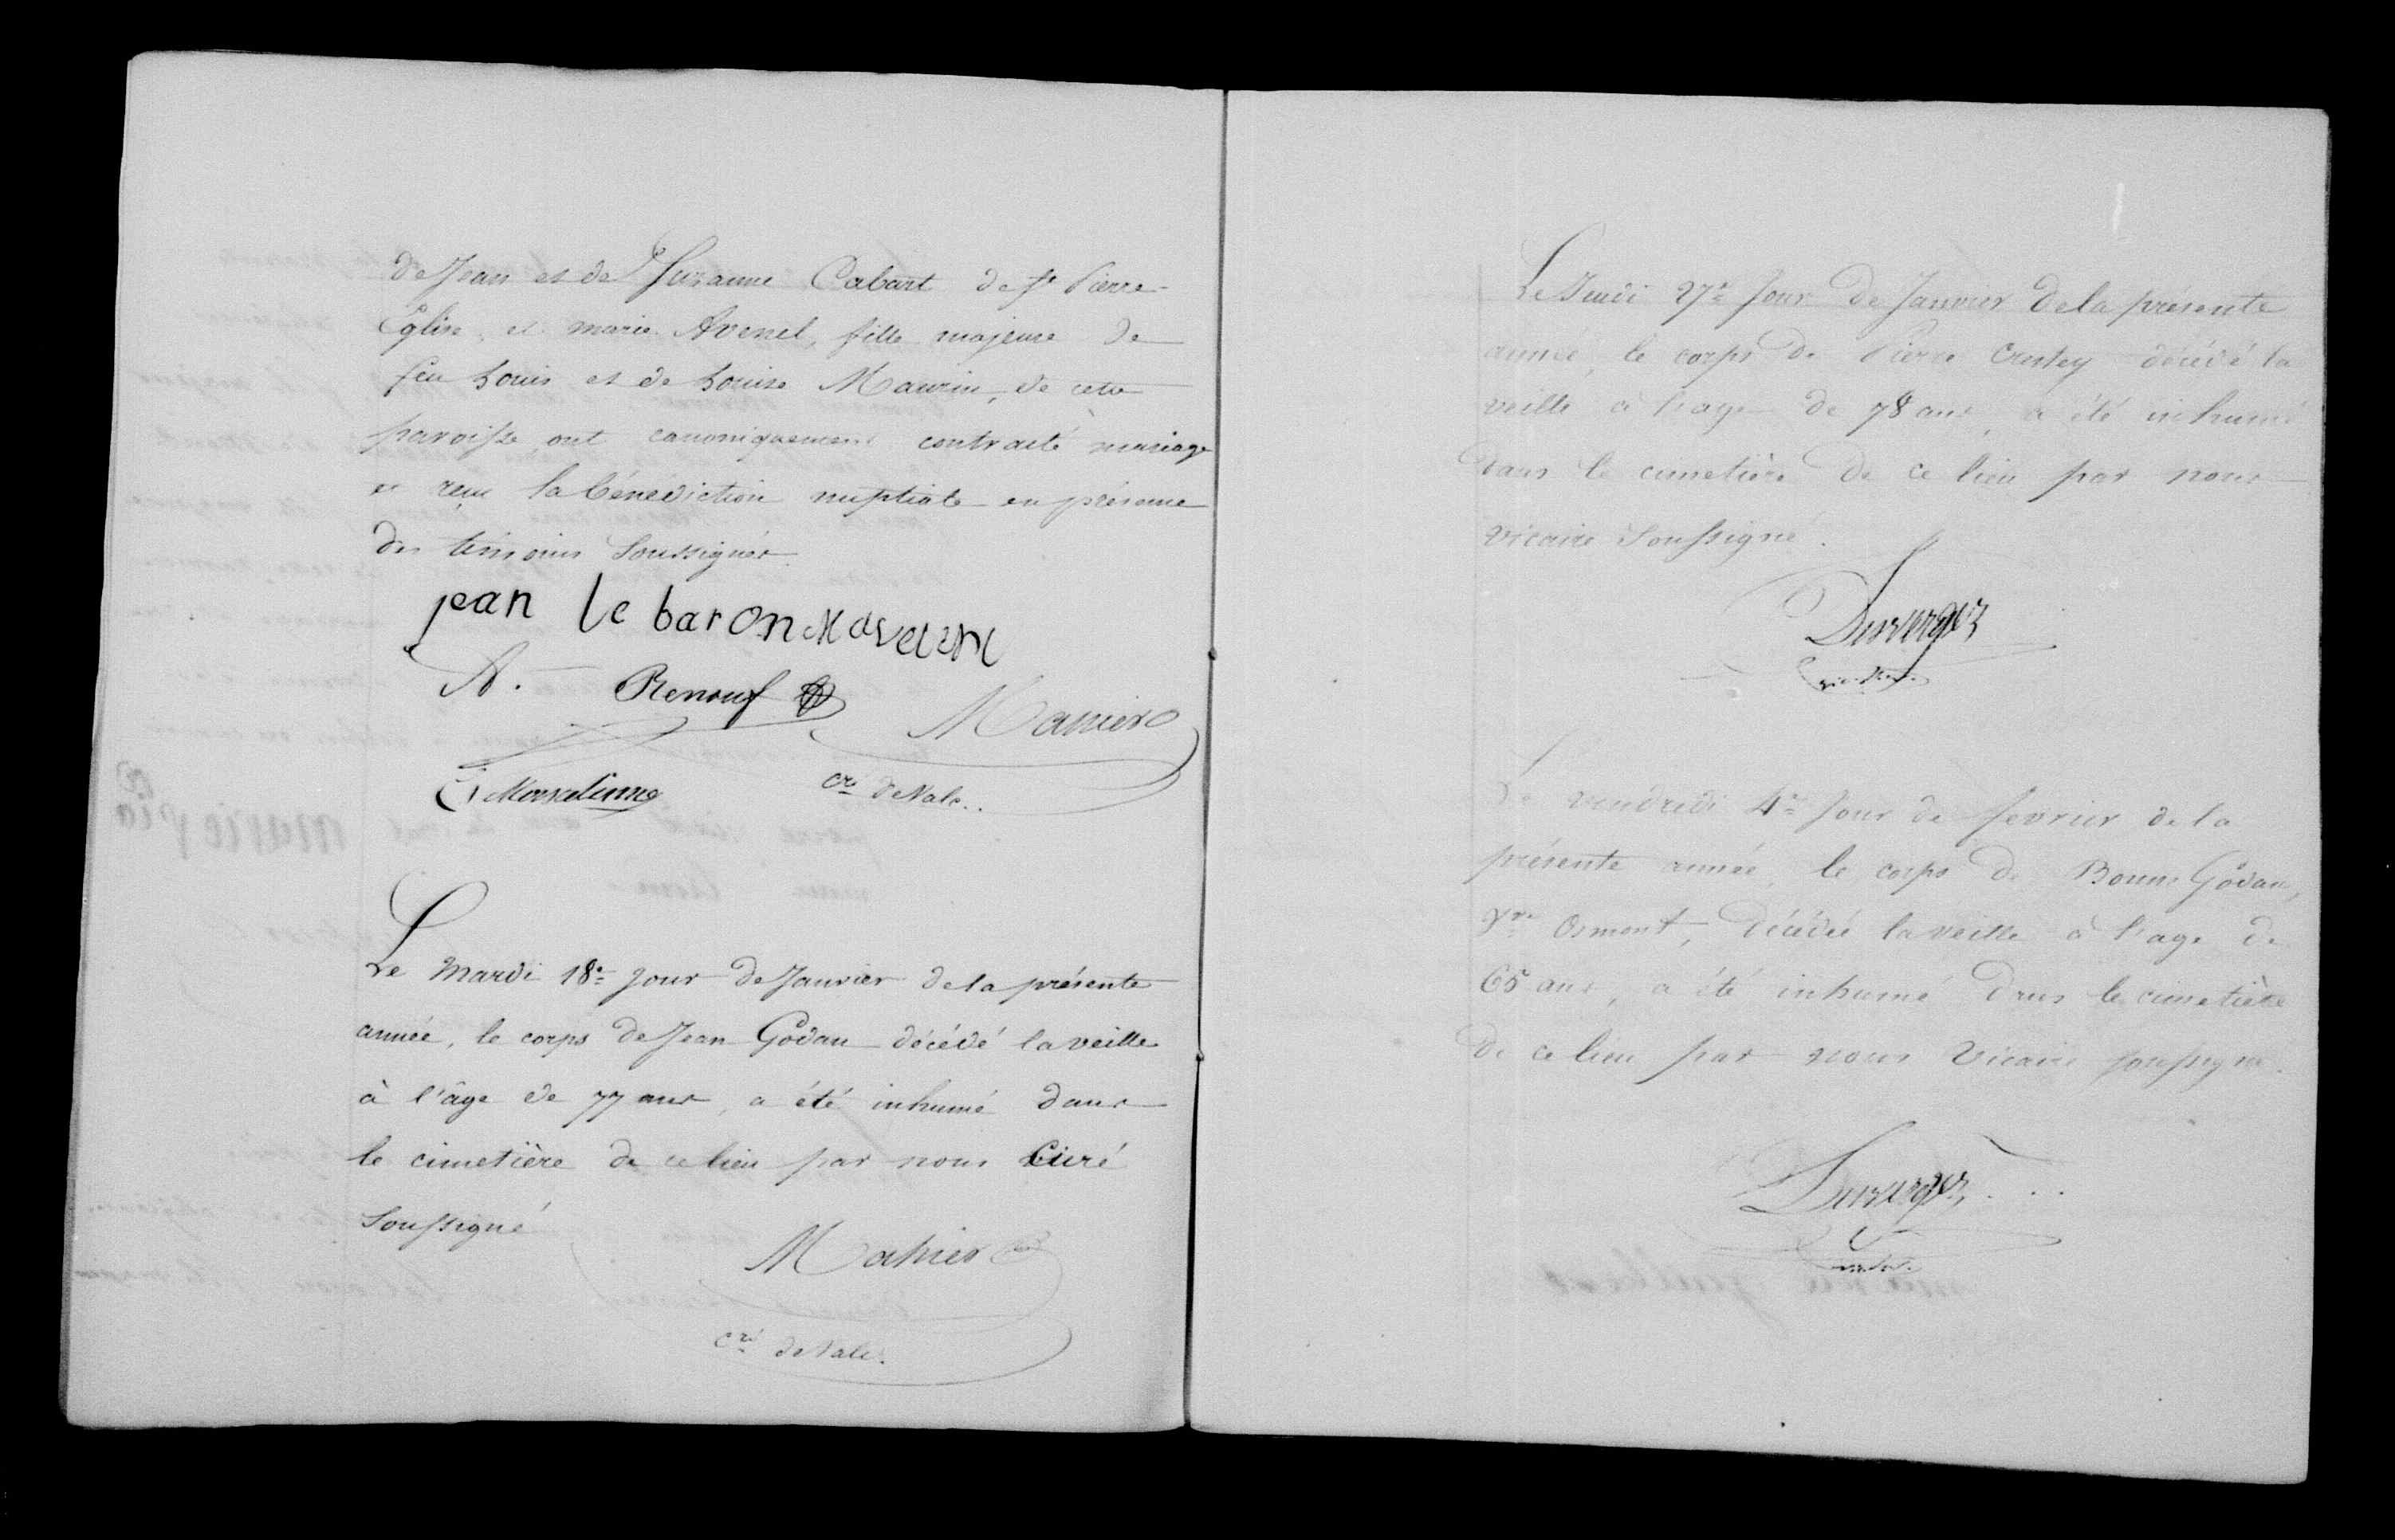 de Jean et de Suzanne Cabart de St Pierre-
Eglise, et marie Avenel, fille majeure de
feu Louis et de Louise Maurin, de cette
paroisse, ont canoniquement contracté mariage
et reçu la bénédiction nuptiale en présence
des témoins soussignés.
jean le baron M avenel
A. Renouf
Mahier
Marceline
cré de Valc.
Le Mardi 18e jour de Janvier de la présente
année, le corps de Jean Godan décédé la veille
à l'âge de 77 ans, a été inhumé dans
le cimetière de ce lieu par nous Curé
soussigné
Mahier
cré de Valc.
Le Jeudi 27e jour de Janvier de la présente
année, le corps de Pierre Crestey décédé la
veille à l'age de 78 ans, a été inhumé
dans le cimetière de ce lieu par nous
vicaire soussigné.
Duverger
Le vendredi 4e jour de fevrier de la
présente année, le corps de Bonne Godan,
Vve Osmont, décédée la veille à l'age de
65 ans, a été inhumé dans le cimetière
de ce lieu par nous Vicaire soussigné.
Duverger